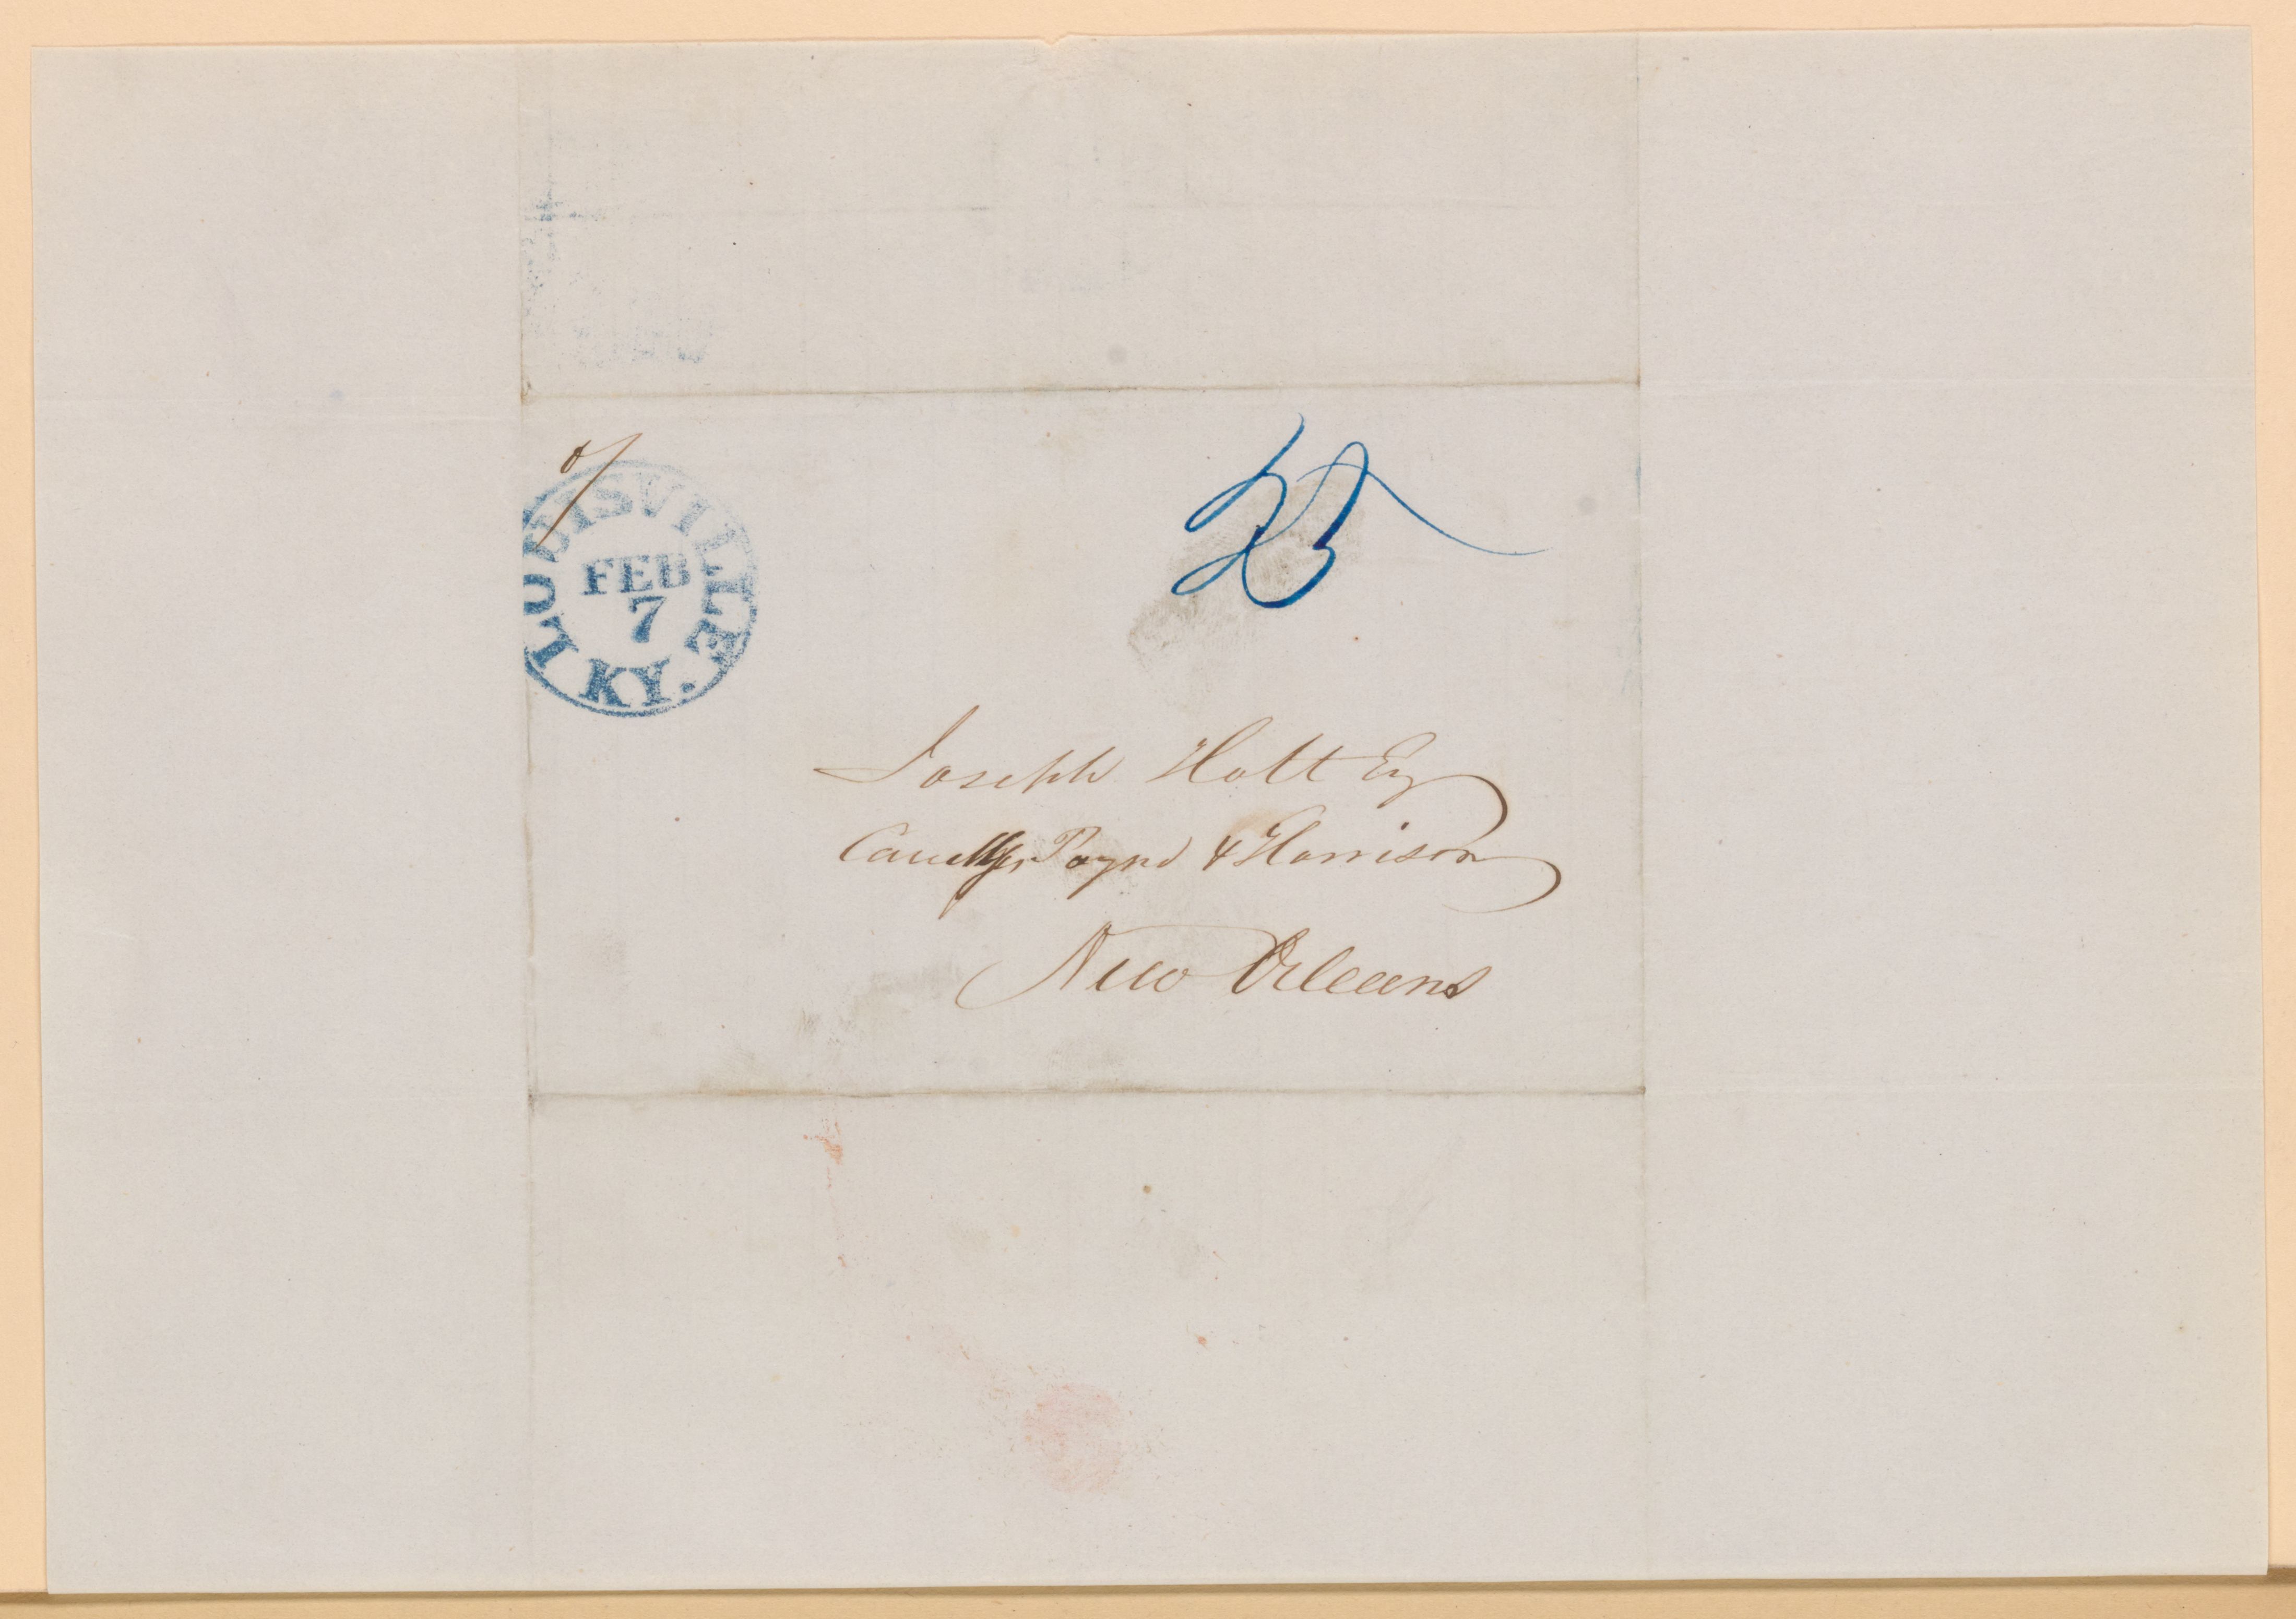 LOUISVILLE
FEB
7
KY.
25
Joseph Holt Esq
Care Payne & Harrison
New Orleans